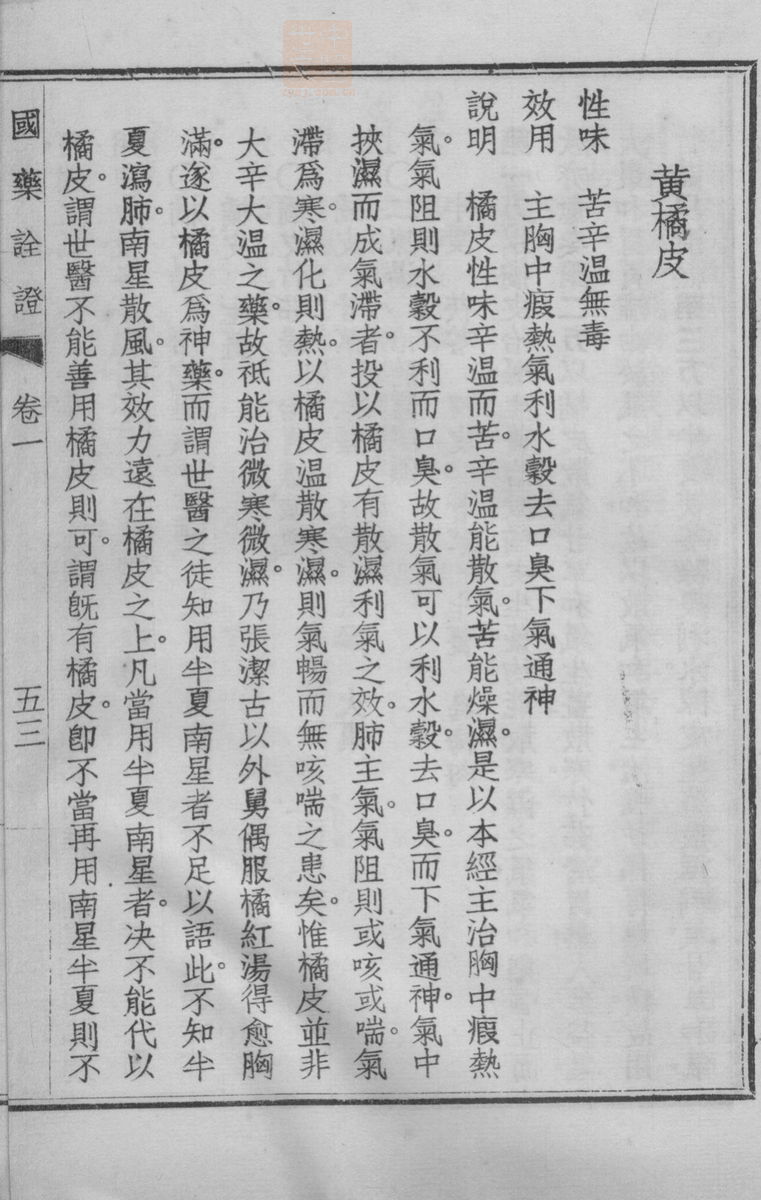 黃橘皮
性味　苦辛温無毒
效用　主胸中瘕熱氣利水穀去口臭下氣通神
說明　橘皮性味辛温而苦。辛温能散氣。苦能燥濕。是以本經主治胸中瘕熱
氣。氣阻則水穀不利而口臭。故散氣可以利水穀。去口臭。而下氣通神。氣中
挾濕而成氣滯者。投以橘皮有散濕利氣之效。肺主氣。氣阻則或咳或喘。氣
滯爲寒。濕化則熱。以橘皮温散寒濕。則氣暢而無咳喘之患矣。惟橘皮並非
大辛大温之藥。故祗能治微寒微濕。乃張潔古以外舅偶服橘紅湯得愈胸
滿。遂以橘皮爲神藥。而謂世醫之徒知用半夏南星者不足以語此。不知半
夏瀉肺。南星散風。其效力遠在橘皮之上。凡當用半夏南星者。决不能代以
橘皮。謂世醫不能善用橘皮則可。謂旣有橘皮。卽不當再用南星半夏則不
國藥詮證　卷一　五三